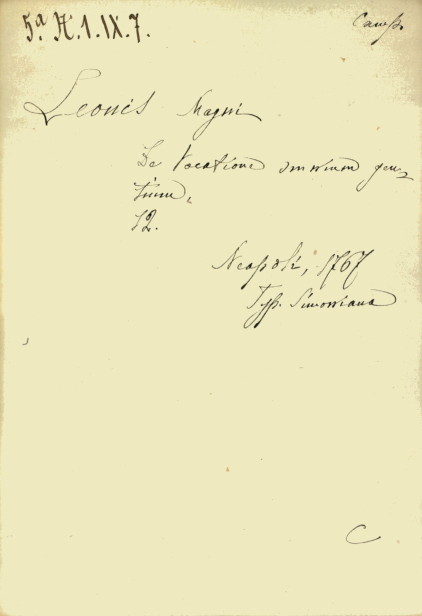 5ª H.1.IX.7.
Camp.
Leonis Magni
De Vocatione omnium gen-
tium,
12.
Neapoli, 1767
Typ. Simoniana
C